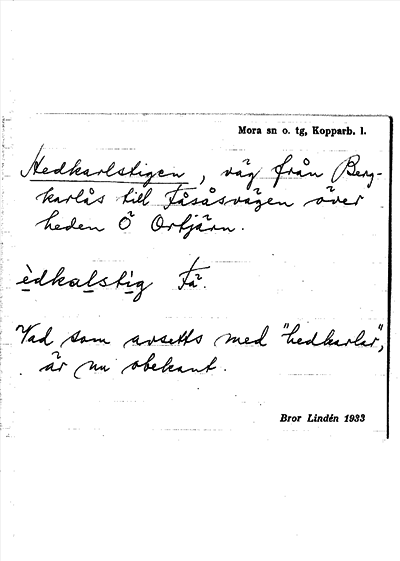 Mora sn o. tg, Kopparb. l.
Hedkarlstigen, väg från Berg-
karlås till Fåsåsvägen över
heden Ö Ortjärn.
èdkalstig Få.
Vad som avsetts med "hedkarlar",
är nu obekant.
Bror Lindén 1933